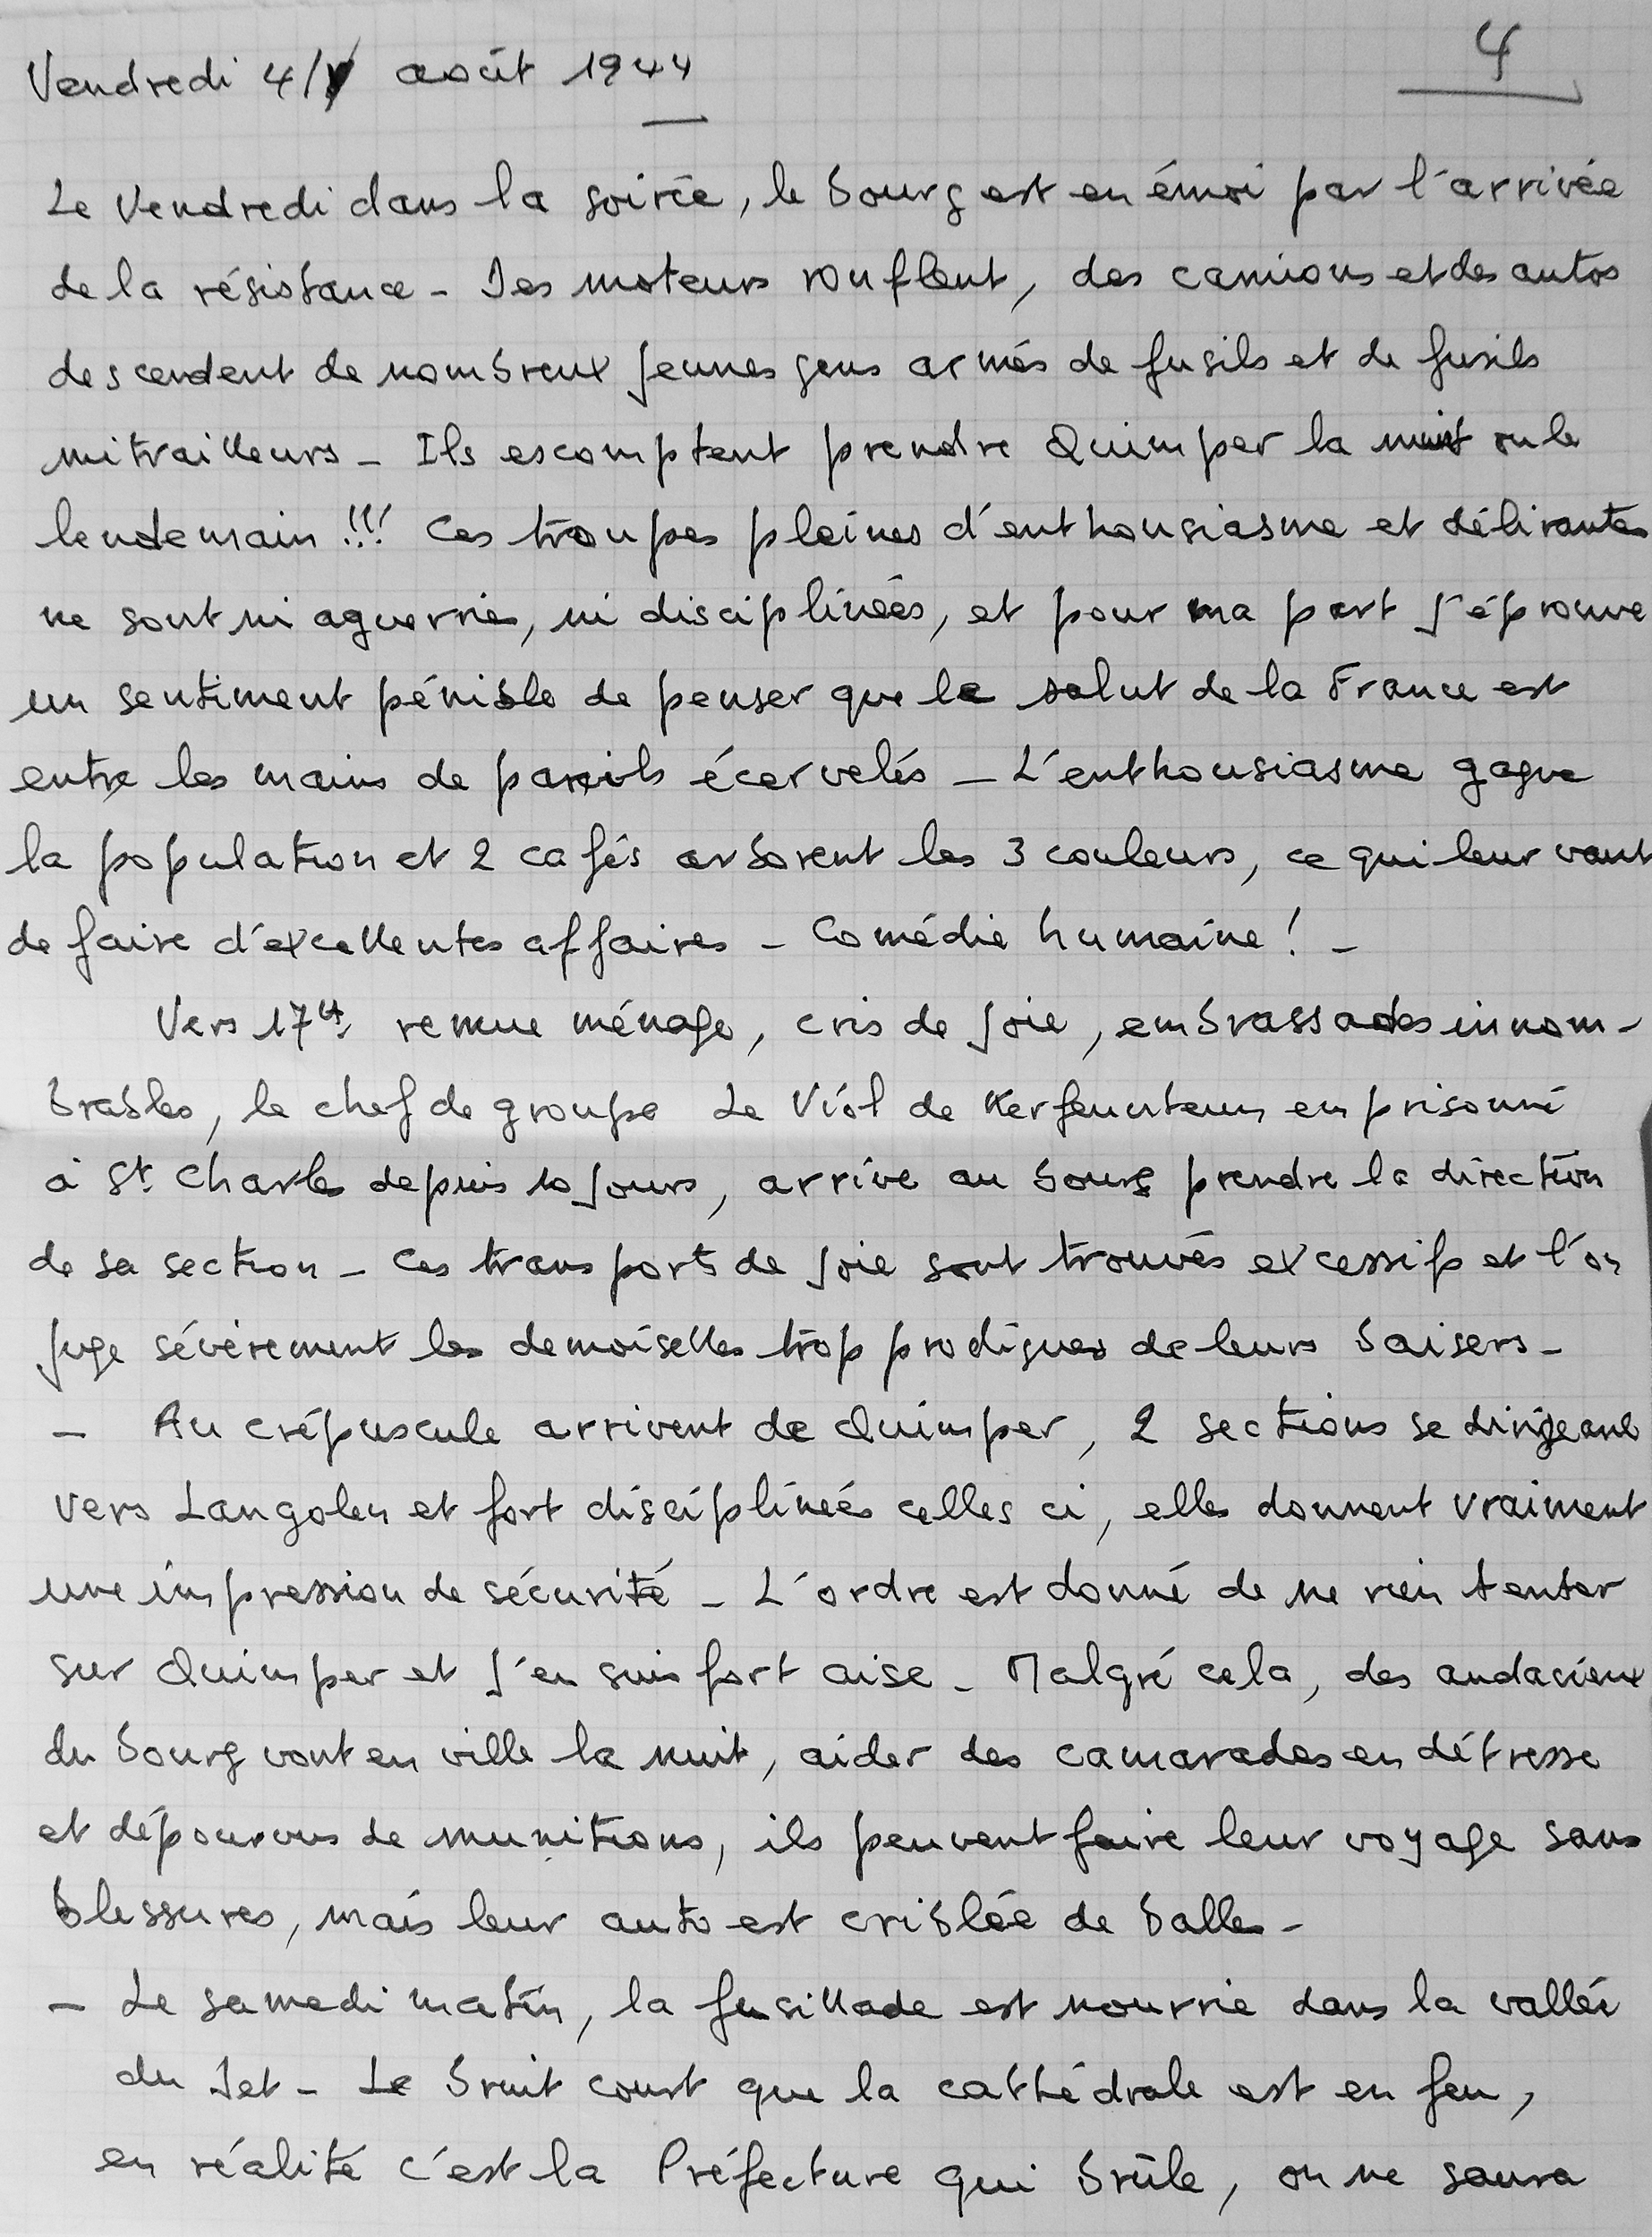 Vendredi 4/ août 1944
4
Le Vendredi dans la soirée, le bourg est en émoi par l'arrivée
de la résistance - Des moteurs ronflent, des camions et des autos
descendent de nombreux jeunes gens armés de fusils et de fusils
mitrailleurs - Ils escomptent prendre Quimper la nuit ou le
lendemain !!! Ces troupes pleines d'enthousiasme et délirantes
ne sont ni aguerries, ni disciplinées, et pour ma part j'éprouve
un sentiment pénible de penser que le salut de la France est
entre les mains de pareils écervelés - L'enthousiasme gagne
la population et 2 cafés arborent les 3 couleurs, ce qui leur vaut
de faire d'excellentes affaires - Comédie humaine ! -
Vers 17H, remue ménage, cris de joie, embrassades innom-
brables, le chef de groupe Le Viol de Kerfeunteun emprisonné
à St Charles depuis 10 jours, arrive au bourg prendre la direction
de sa section - Ces transports de joie sont trouvés excessifs et l'on
juge sévèrement les demoiselles trop prodigues de leurs baisers -
- Au crépuscule arrivent de Quimper, 2 sections se dirigeant
vers Langolen et fort disciplinées celles ci, elles donnent vraiment
une impression de sécurité - L'ordre est donné de ne rien tenter
sur Quimper et j'en suis fort aise - Malgré cela, des audacieux
du bourg vont en ville la nuit, aider des camarades en détresse
et dépourvus de munitions, ils peuvent faire leur voyage sans
blessures, mais leur auto est criblée de balles -
- Le samedi matin, la fusillade est nourrie dans la vallée
du Jet - Le bruit court que la cathédrale est en feu,
en réalité c'est la Préfecture qui brûle, on ne saura